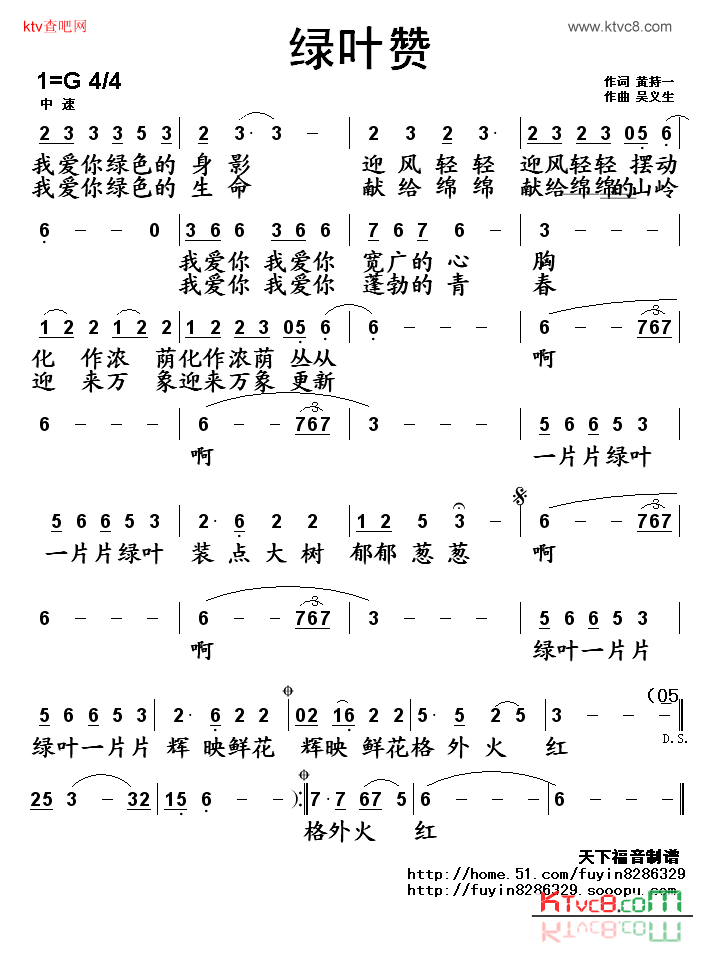 ktv查吧网
www.ktvc8.com
绿叶赞
1=G 4/4
中 速
作词 黄持一
作曲 吴义生
2 3 3 3 5 3 | 2 3· 3 - | 2 3 2 3 | 2 3 2 3 05 6
我爱你绿色的 身 影 迎 风 轻 轻 迎风轻轻 摆动
我爱你绿色的 生 命 献 给 绵 绵 献给绵绵的山岭
6 - - 0 | 3 6 6 3 6 6 | 7 6 7 6 - | 3 - - -
我爱你 我爱你 宽广的 心 胸
我爱你 我爱你 蓬勃的 青 春
1 2 2 1 2 | 1 2 2 3 05 6 | 6 - - - | 6 - - 767
化 作浓 荫化作浓荫 丛从 啊
迎 来万 象迎来万象 更新
6 - - - | 6 - - 767 | 3 - - - | 5 6 6 5 3
啊 一片片绿叶
5 6 6 5 3 | 2· 6 2 2 | 1 2 5 3 - | 6 - - 767
一片片绿叶 装 点 大 树 郁郁 葱葱 啊
6 - - - | 6 - - 767 | 3 - - - | 5 6 6 5 3
啊 绿叶一片片
(05
5 6 6 5 3 | 2· 6 2 2 | 02 16 2 2 | 5· 5 2 5 | 3 - -
绿叶一片片 辉 映鲜花 辉映 鲜花格 外 火 红
D.S.
25 3 - 32 | 15 6 - - ):| 7· 7 67 5 | 6 - - - | 6 - - -
格外火 红
天下福音制谱
http://home.51.com/fuyin8286329
http://fuyin8286329.sooopu.com
KTvc8.com